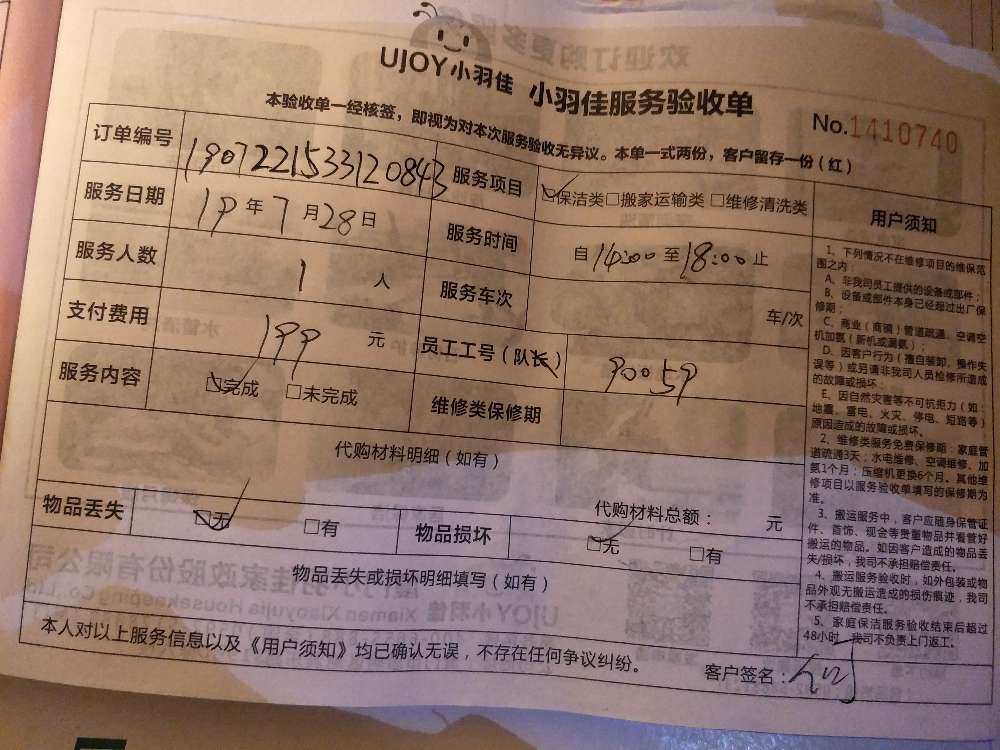 UJOY小羽佳 小羽佳服务验收单
No.1410740
本验收单一经核签，即视为对本次服务验收无异议。本单一式两份，客户留存一份（红）
订单编号 1907221533120843 服务项目 ☑保洁类□搬家运输类□维修清洗类
服务日期 19年7月28日 服务时间 自14:00至18:00止
服务人数 1人 服务车次 车/次
支付费用 199元 员工工号（队长） 90059
服务内容 ☑完成 □未完成 维修类保修期
代购材料明细（如有）
代购材料总额： 元
物品丢失 ☑无 □有 物品损坏 ☑无 □有
物品丢失或损坏明细填写（如有）
本人对以上服务信息以及《用户须知》均已确认无误，不存在任何争议纠纷。 客户签名：
用户须知
1、下列情况不在维修项目的维保范
围之内：
A、非我司员工提供的设备或部件；
B、设备或部件本身已经超过出厂保
修期；
C、商业（商铺）管道疏通、空调空
机加氨（新机或漏氨）；
D、因客户行为（擅自装卸、操作失
误等）或另请非我司人员检修所造成
的故障或损坏；
E、因自然灾害等不可抗拒力（如：
地震、雷电、火灾、停电、短路等）
原因造成的故障或损坏。
2、维修类服务免费保修期：家庭管
道疏通3天；水电维修、空调维修、加
氨1个月；压缩机更换6个月。其他维
修项目以服务验收单填写的保修期为
准。
3、搬运服务中，客户应随身保管证
件、首饰、现金等贵重物品并看管好
搬运的物品。如因客户造成的物品丢
失/损坏，我司不承担赔偿责任。
4、搬运服务验收时，如外包装或物
品外观无搬运造成的损伤痕迹，我司
不承担赔偿责任。
5、家庭保洁服务验收结束后超过
48小时，我司不负责上门返工。